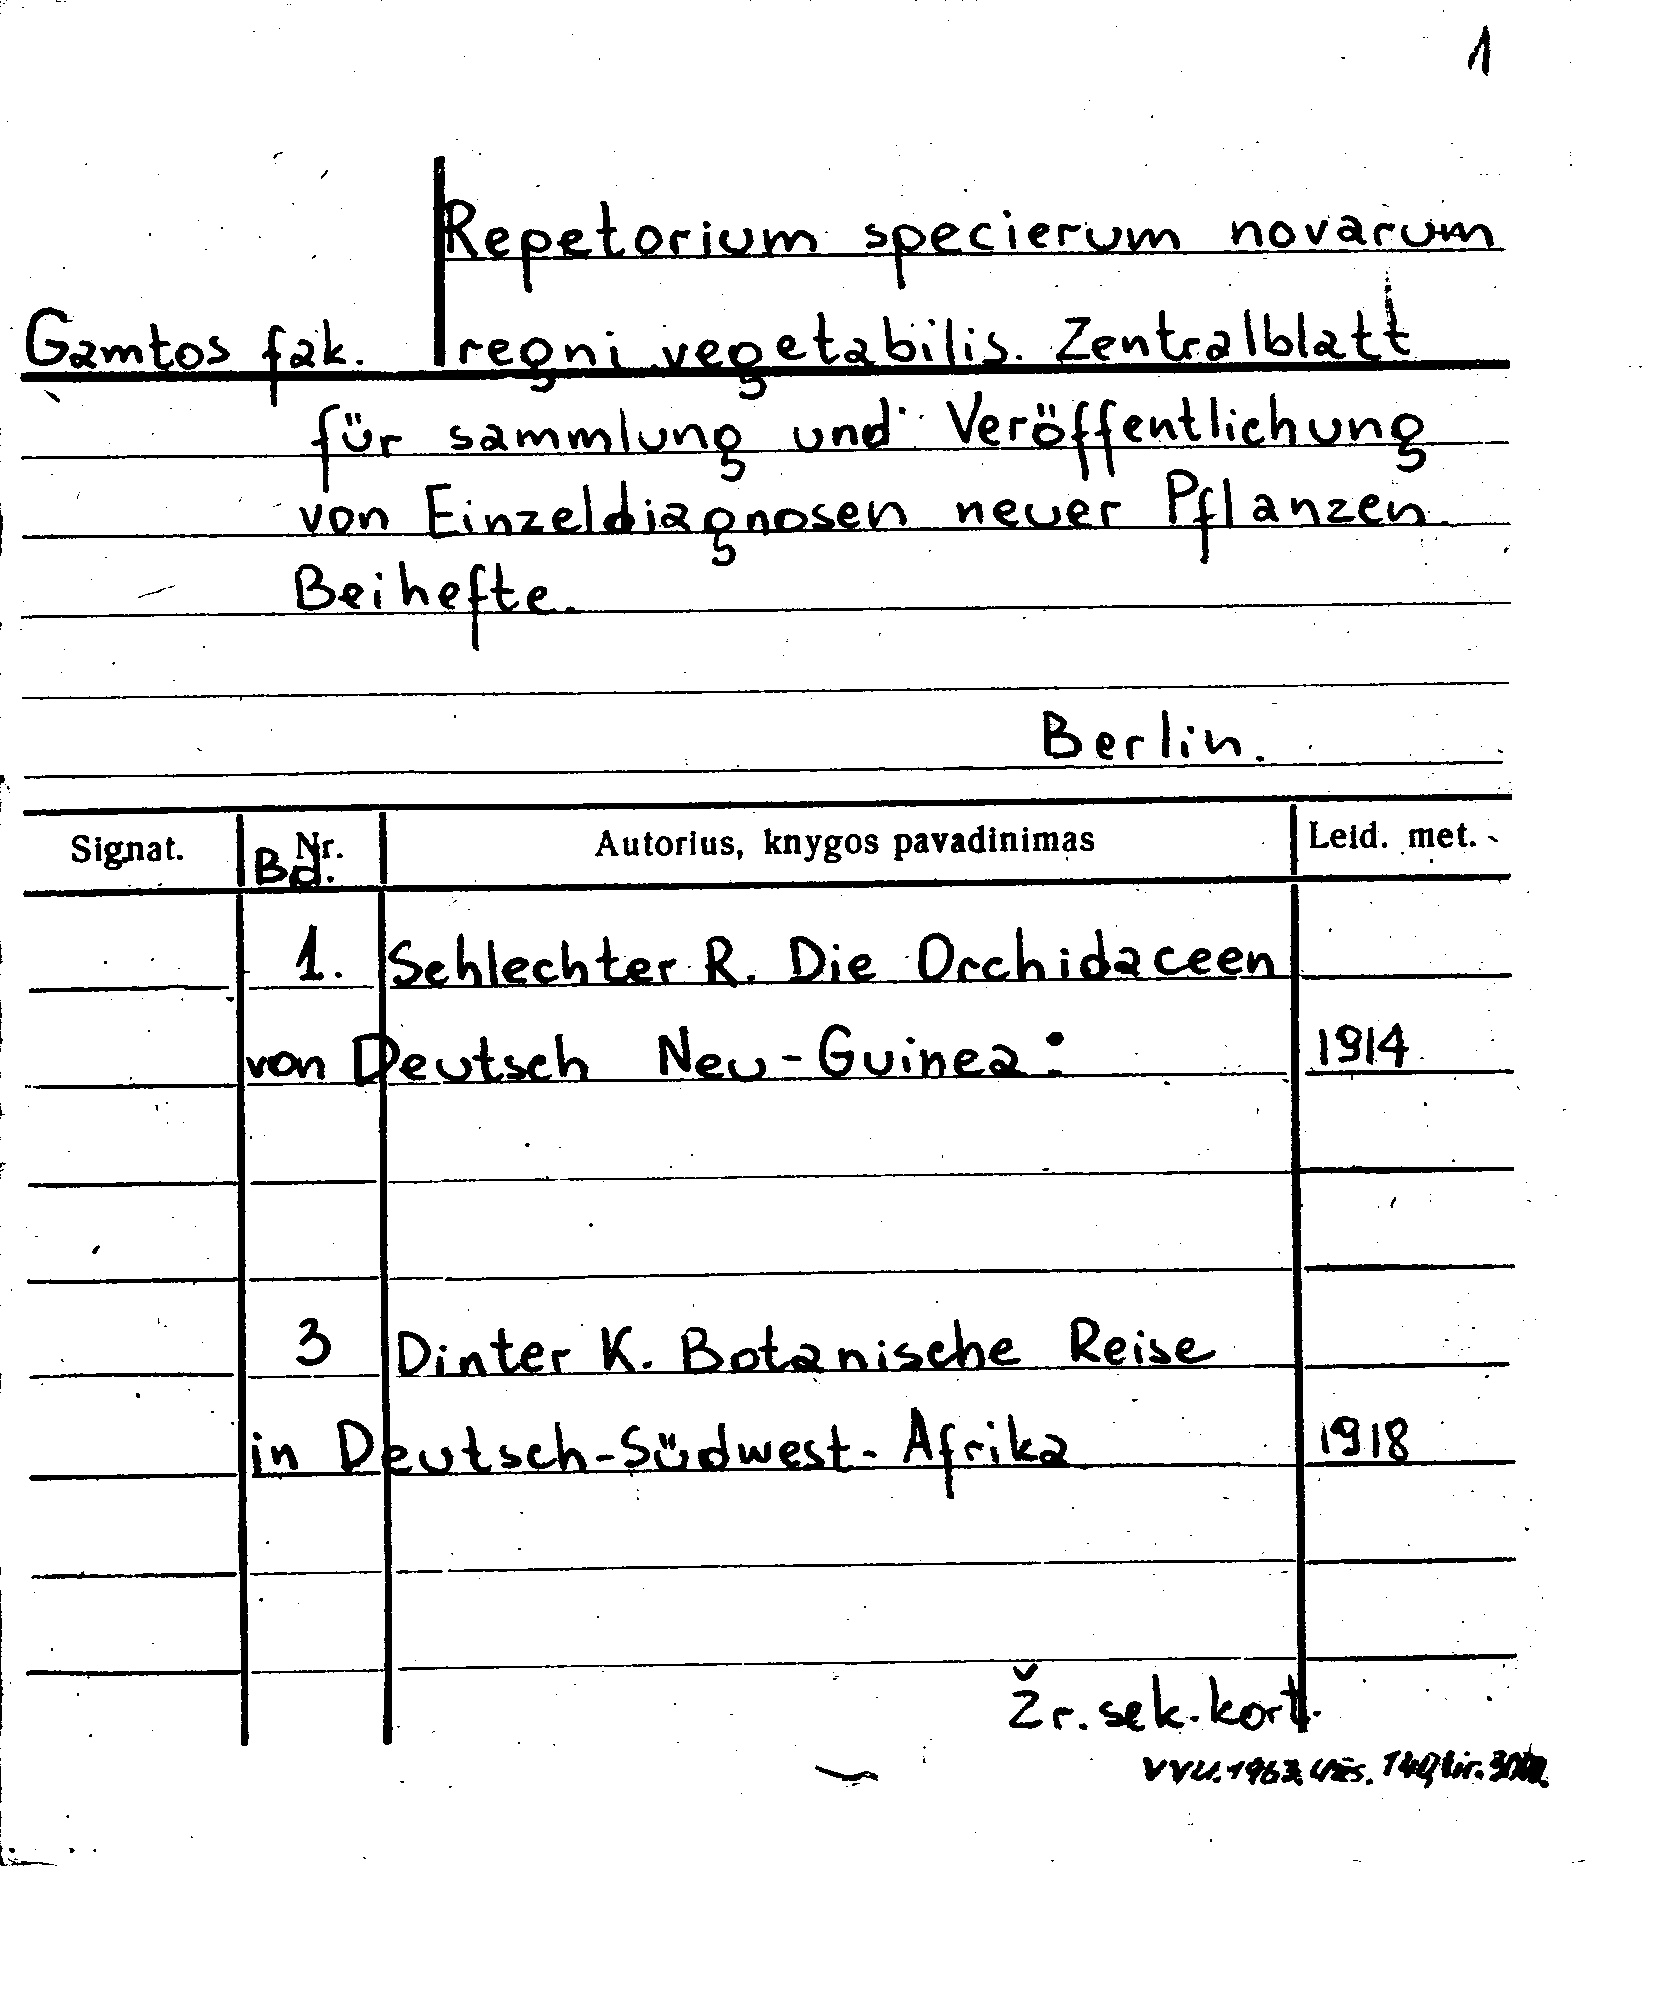 1
Repetorium specierum novarum
Gamtos fak. regni vegetabilis. Zentralblatt
für sammlung und Veröffentlichung
von Einzeldiagnosen neuer Pflanzen.
Beihefte.
Berlin.
Signat. Nr. Bd. Autorius, knygos pavadinimas Leid. met.
1. Schlechter R. Die Orchidaceen
von Deutsch Neu-Guinea: 1914
3 Dinter K. Botanische Reise
in Deutsch-Südwest-Afrika 1918
Žr. sek. kort.
VVU. 1963. Užs. tir.